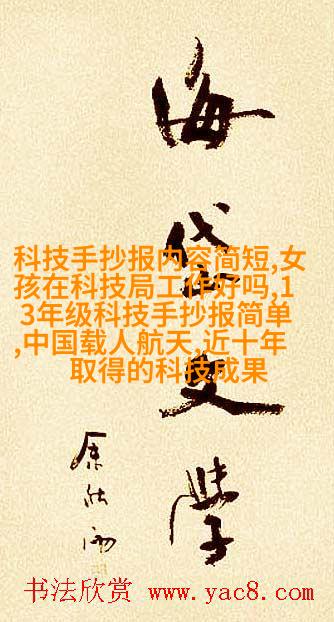 海岱文学
科技手抄报内容简短,女
孩在科技局工作好吗,1
3年级科技手抄报简单
,中国载人航天,近十年
取得的科技成果
书法欣赏 www.yac8.com